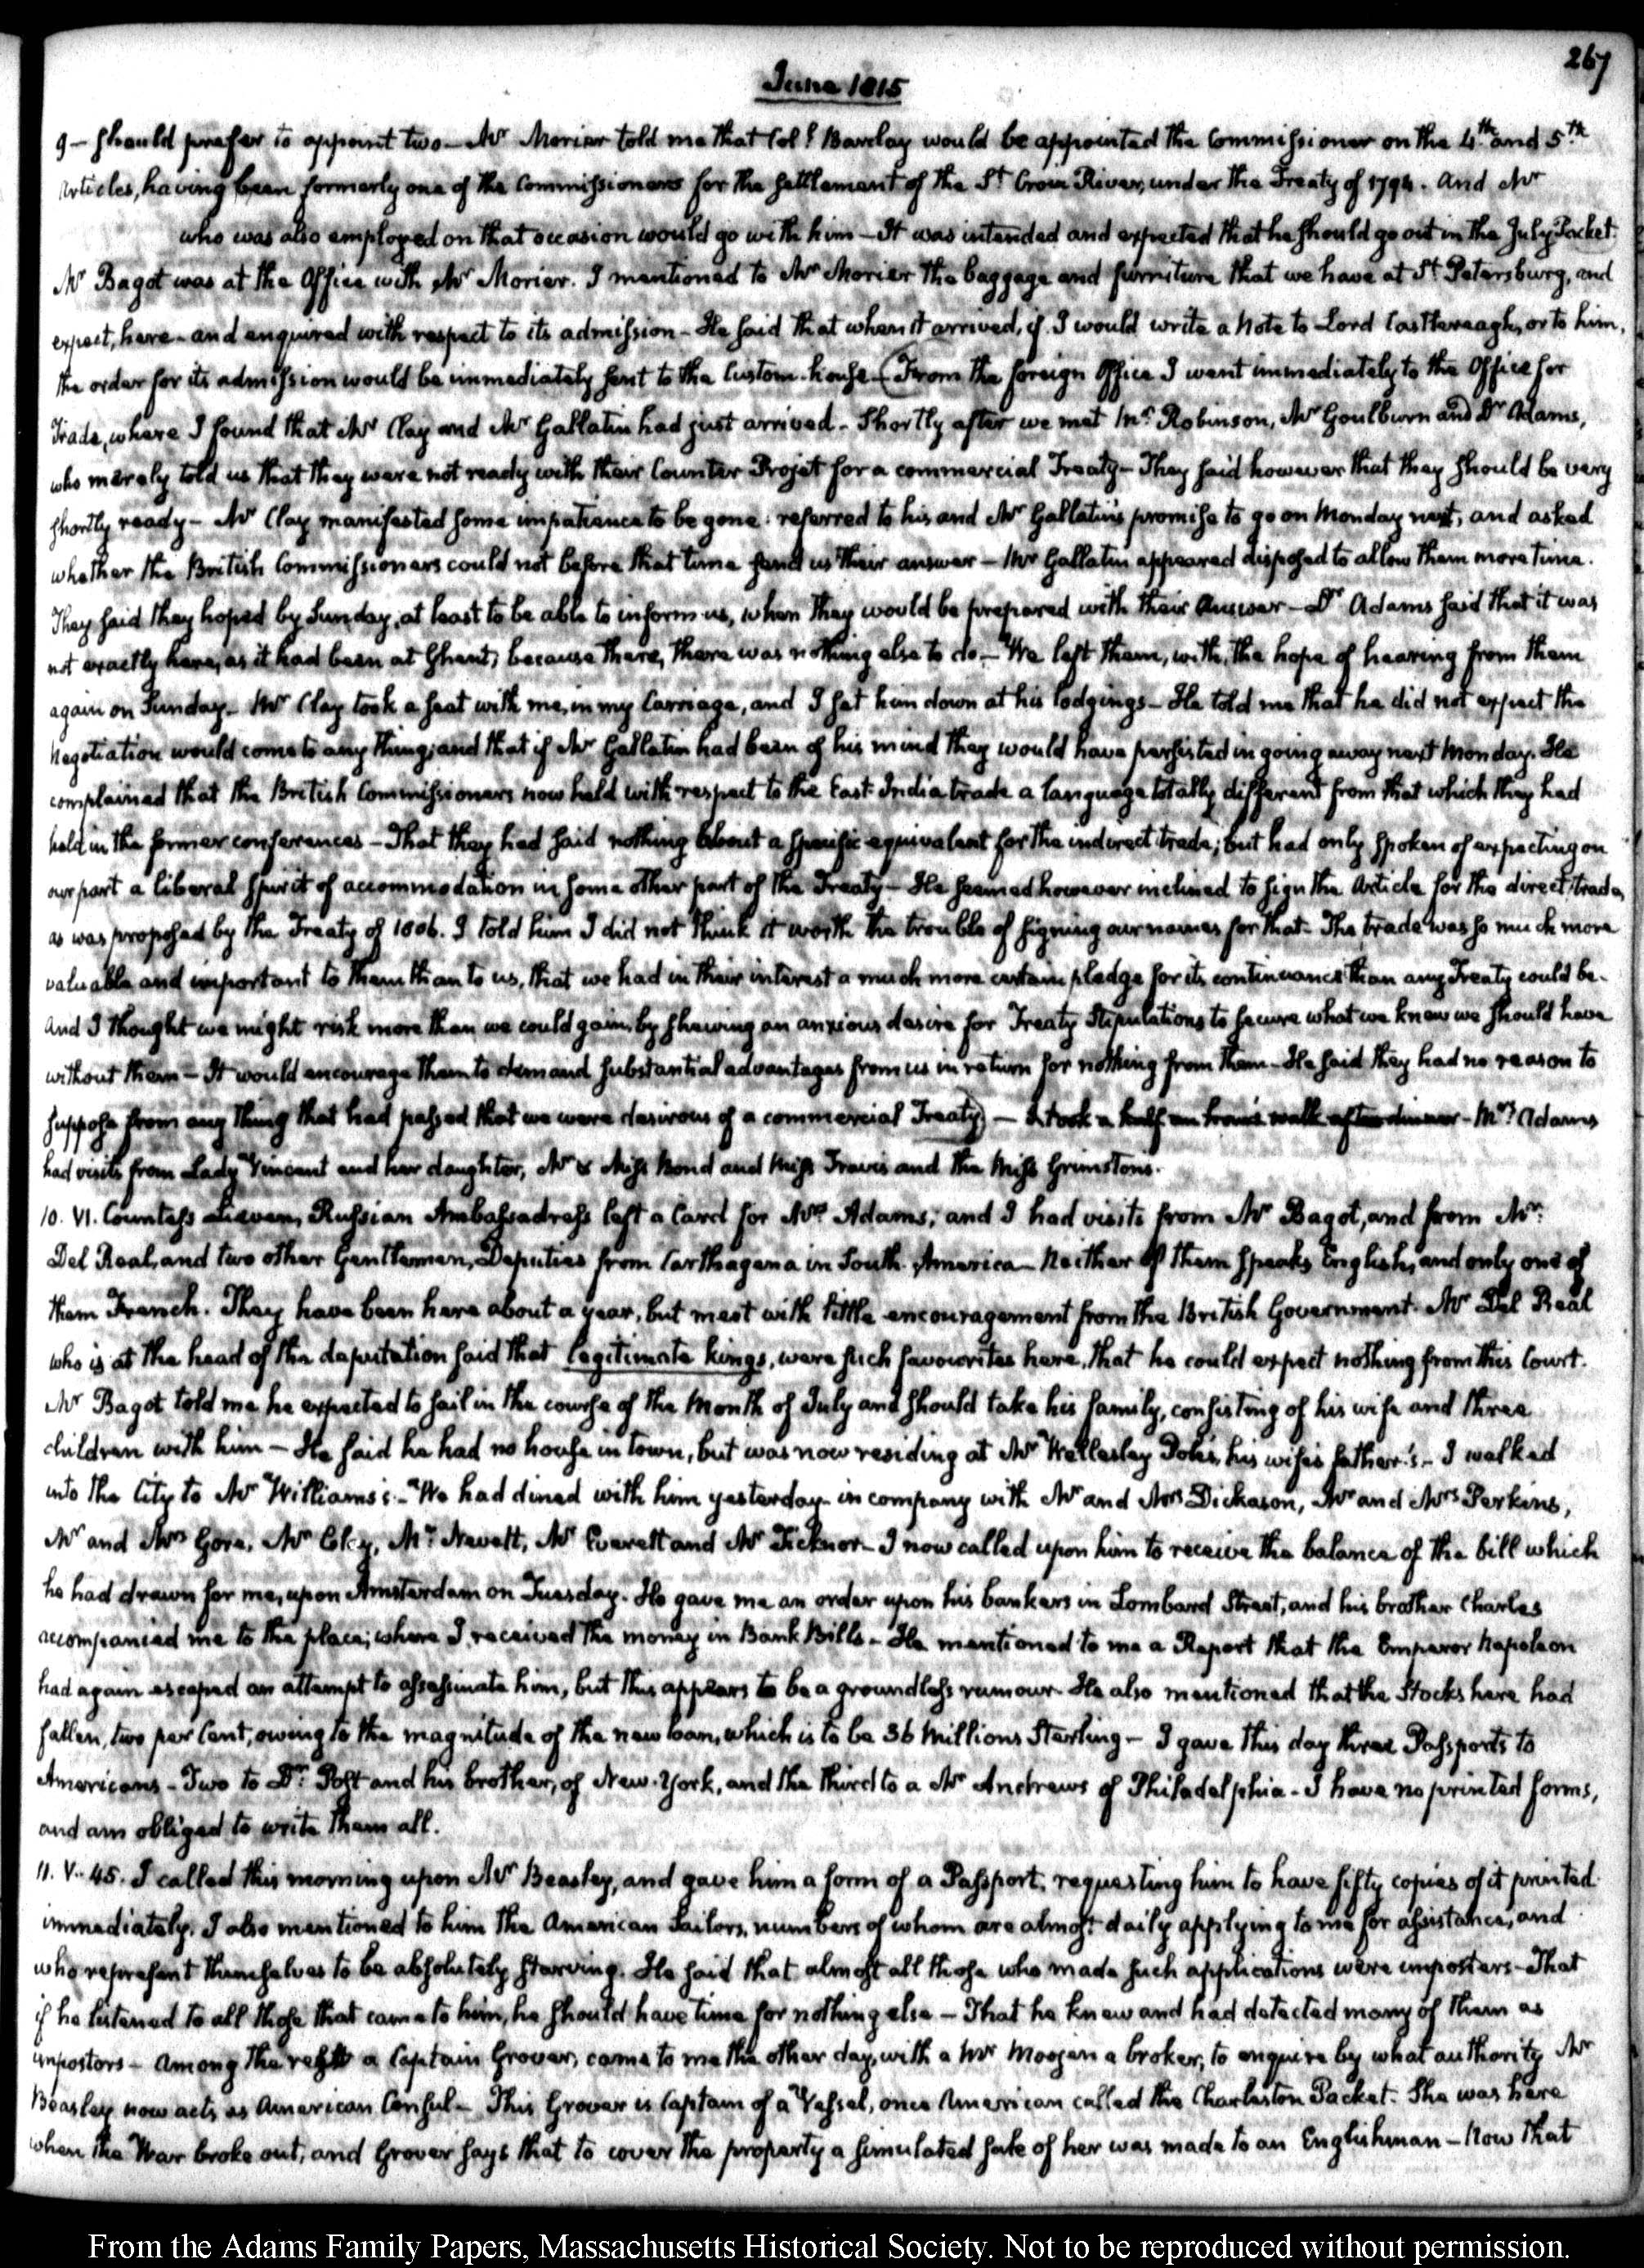 267
June 1815
9 – should prefer to appoint two – Mr Morier told me that Coll. Barclay would be appointed the Commissioner on the 4th and 5th
Articles, having been formerly one of the Commissioners for the settlement of the St Croix River, under the Treaty of 1794. And Mr
who was also employed on that occasion would go with him – It was intended and expected that he should go out in the July Packet.
Mr Bagot was at the Office with Mr Morier. I mentioned to Mr Morier the baggage and furniture that we have at St Petersburg, and
expect, here – and enquired with respect to its admission – He said that when it arrived, if I would write a Note to Lord Castlereagh, or to him,
the order for its admission would be immediately sent to the Custom-house (From the foreign Office I went immediately to the Office for
Trade, where I found that Mr Clay and Mr Gallatin had just arrived – Shortly after we met Mr Robinson, Mr Goulburn and Dr Adams,
who merely told us that they were not ready with their Counter Projet for a commercial Treaty – They said however that they should be very
shortly ready – Mr Clay manifested some impatience to be gone: referred to his and Mr Gallatin's promise to go on Monday next, and asked
whether the British Commissioners could not before that time send us their answer – Mr Gallatin appeared disposed to allow them more time.
They said they hoped by Sunday, at least to be able to inform us, when they would be prepared with their Answer – Dr Adams said that it was
not exactly here, as it had been at Ghent; because there, there was nothing else to do – We left them, with, the hope of hearing from them
again on Sunday – Mr Clay took a seat with me, in my Carriage, and I set him down at his lodgings – He told me that he did not expect the
Negotiation would come to any thing; and that if Mr Gallatin had been of his mind they would have persisted in going away next Monday. He
complained that the British Commissioners now held with respect to the East-India trade a language totally different from that which they had
held in the former conferences – That they had said nothing about a specific equivalent for the indirect trade; but had only spoken of expecting on
our part a liberal spirit of accommodation in some other part of the Treaty – He seemed however inclined to sign the Article for the direct trade,
as was proposed by the Treaty of 1806. I told him I did not think it worth the trouble of signing our names for that – The trade was so much more
valuable and important to them than to us, that we had in their interest a much more certain pledge for its continuance than any Treaty could be –
And I thought we might risk more than we could gain, by shewing an anxious desire for Treaty Stipulations to secure what we knew we should have
without them – It would encourage them to demand substantial advantages from us in return for nothing from them – He said they had no reason to
suppose from any thing that had passed that we were desirous of a commercial Treaty) – I took a half an hour's walk after dinner – Mrs Adams
had visits from Lady Vincent and her daughter, Mr & Miss Bond and Miss Travis and the Miss Grimstons.
10. VI. Countess Lieven, Russian Ambassadress left a Card for Mrs Adams; and I had visits from Mr Bagot, and from Mr
Del Real, and two other Gentlemen, Deputies from Carthagena in South-America – Neither of them speaks English, and only one of
them French. They have been here about a year, but meet with little encouragement from the British Government. Mr Del Real
who is at the head of the deputation said that legitimate kings, were such favourites here, that he could expect nothing from this Court.
Mr Bagot told me he expected to sail in the course of the Month of July and should take his family, consisting of his wife and three
children with him – He said he had no house in town, but was now residing at Mr Wellesley Pole's, his wife's father's – I walked
into the City to Mr Williams's – We had dined with him yesterday in company with Mr and Mrs Dickason, Mr and Mrs Perkins,
Mr and Mrs Gore, Mr Clay, Mr Nevett, Mr Everett and Mr Ticknor – I now called upon him to receive the balance of the bill which
he had drawn for me, upon Amsterdam on Tuesday. He gave me an order upon his bankers in Lombard Street, and his brother Charles
accompanied me to the place; where I received the money in Bank Bills – He mentioned to me a Report that the Emperor Napoleon
had again escaped an attempt to assassinate him, but this appears to be a groundless rumour. He also mentioned that the Stocks here had
fallen, two per Cent, owing to the magnitude of the new loan, which is to be 36 Millions Sterling – I gave this day three Passports to
Americans – Two to Dr Post and his brother, of New-York, and the third to a Mr Andrews of Philadelphia – I have no printed forms,
and am obliged to write them all.
11. V. 45. I called this morning upon Mr Beasley, and gave him a form of a Passport, requesting him to have fifty copies of it printed
immediately. I also mentioned to him the American Sailors, numbers of whom are almost daily applying to me for assistance, and
who represent themselves to be absolutely starving. He said that almost all those who made such applications were impostors – That
if he listened to all those that came to him, he should have time for nothing else – That he knew and had detected many of them as
impostors – Among the rest a Captain Grover, came to me the other day, with a Mr Moojen a broker, to enquire by what authority Mr
Beasley now acts as American Consul – This Grover is Captain of a Vessel, once American called the Charleston Packet. She was here
when the War broke out, and Grover says that to cover the property a simulated sale of her was made to an Englishman – Now that
From the Adams Family Papers, Massachusetts Historical Society. Not to be reproduced without permission.